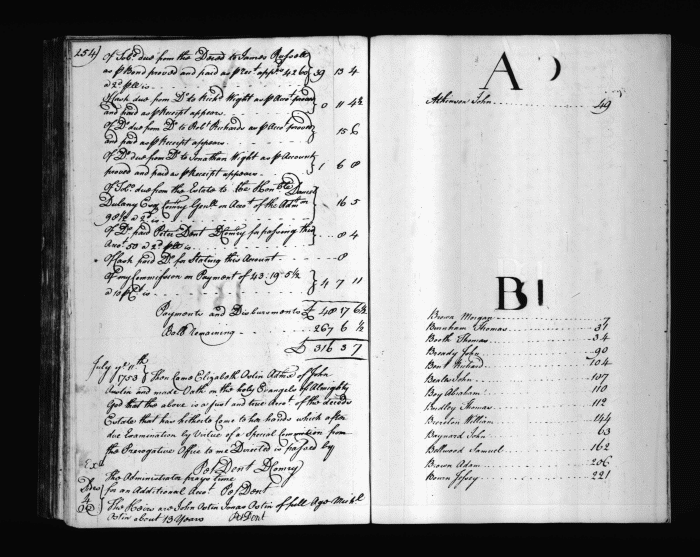 254)
Of Tobo. due from the Deced to James Russell
as p Bond proved and paid as p Rec. apprs. 4260 39 13 4
a 2d p lb is
Of Cash due from Do. to Richd. Wight as p Accot. proved
and paid as p Receipt appears 0 11 4½
Of Do. due from Do. to Robt. Richards as p Accot. proved
and paid as p Receipt appears 15 6
Of Do. due from Do. to Jonathan Wight as p Account
proved and paid as p Receipt appears 1 6 8
Of Tobo. due from the Estate to the Honble. Daniel
Dulany Esq. Comry. Genll. on Accot. of the Admn. 16 5
98½ a 2d is
Of Do. paid Peter Dent D Comry for passing this
Accot. 50 a 2d p lb is 8 4
Of Cash paid Do. for Stating this Account 8
Of my Commission on Payment of 43:19:5½
a 10 p Ct is 4 7 11
Payments and Disbursements £ 48 17 6½
Ball. Remaining 267 6 ½
£ 316 3 7
July ye 11th
1753 } Then Came Elizabeth Astin Admx. of John
Austin and made Oath on the holy Evangels of Almighty
God that the above is a just and true Accot. of the deceds
Estate that has hitherto Come to her hands which after
due Examination by Virtue of a Special Commission from
the Prerogative Office to me Directed is passed by
Petr. Dent D Comry
The Administratrix prays time
for an Additional Accot. Petr. Dent
The Heirs are John Astin Jonas Astin of full Age
Astin about 13 Years P Dent
A
Atkinson John 49
B
Brown Morgan 7
Burnham Thomas 31
Booth Thomas 34
Bready John 90
Bent Richard 104
Beale John 107
Boy Abraham 110
Budley Thomas 112
Brereton William 144
Baynard John 63
Bellwood Samuel 162
Brown Adam 206
Bowen Jeffery 221